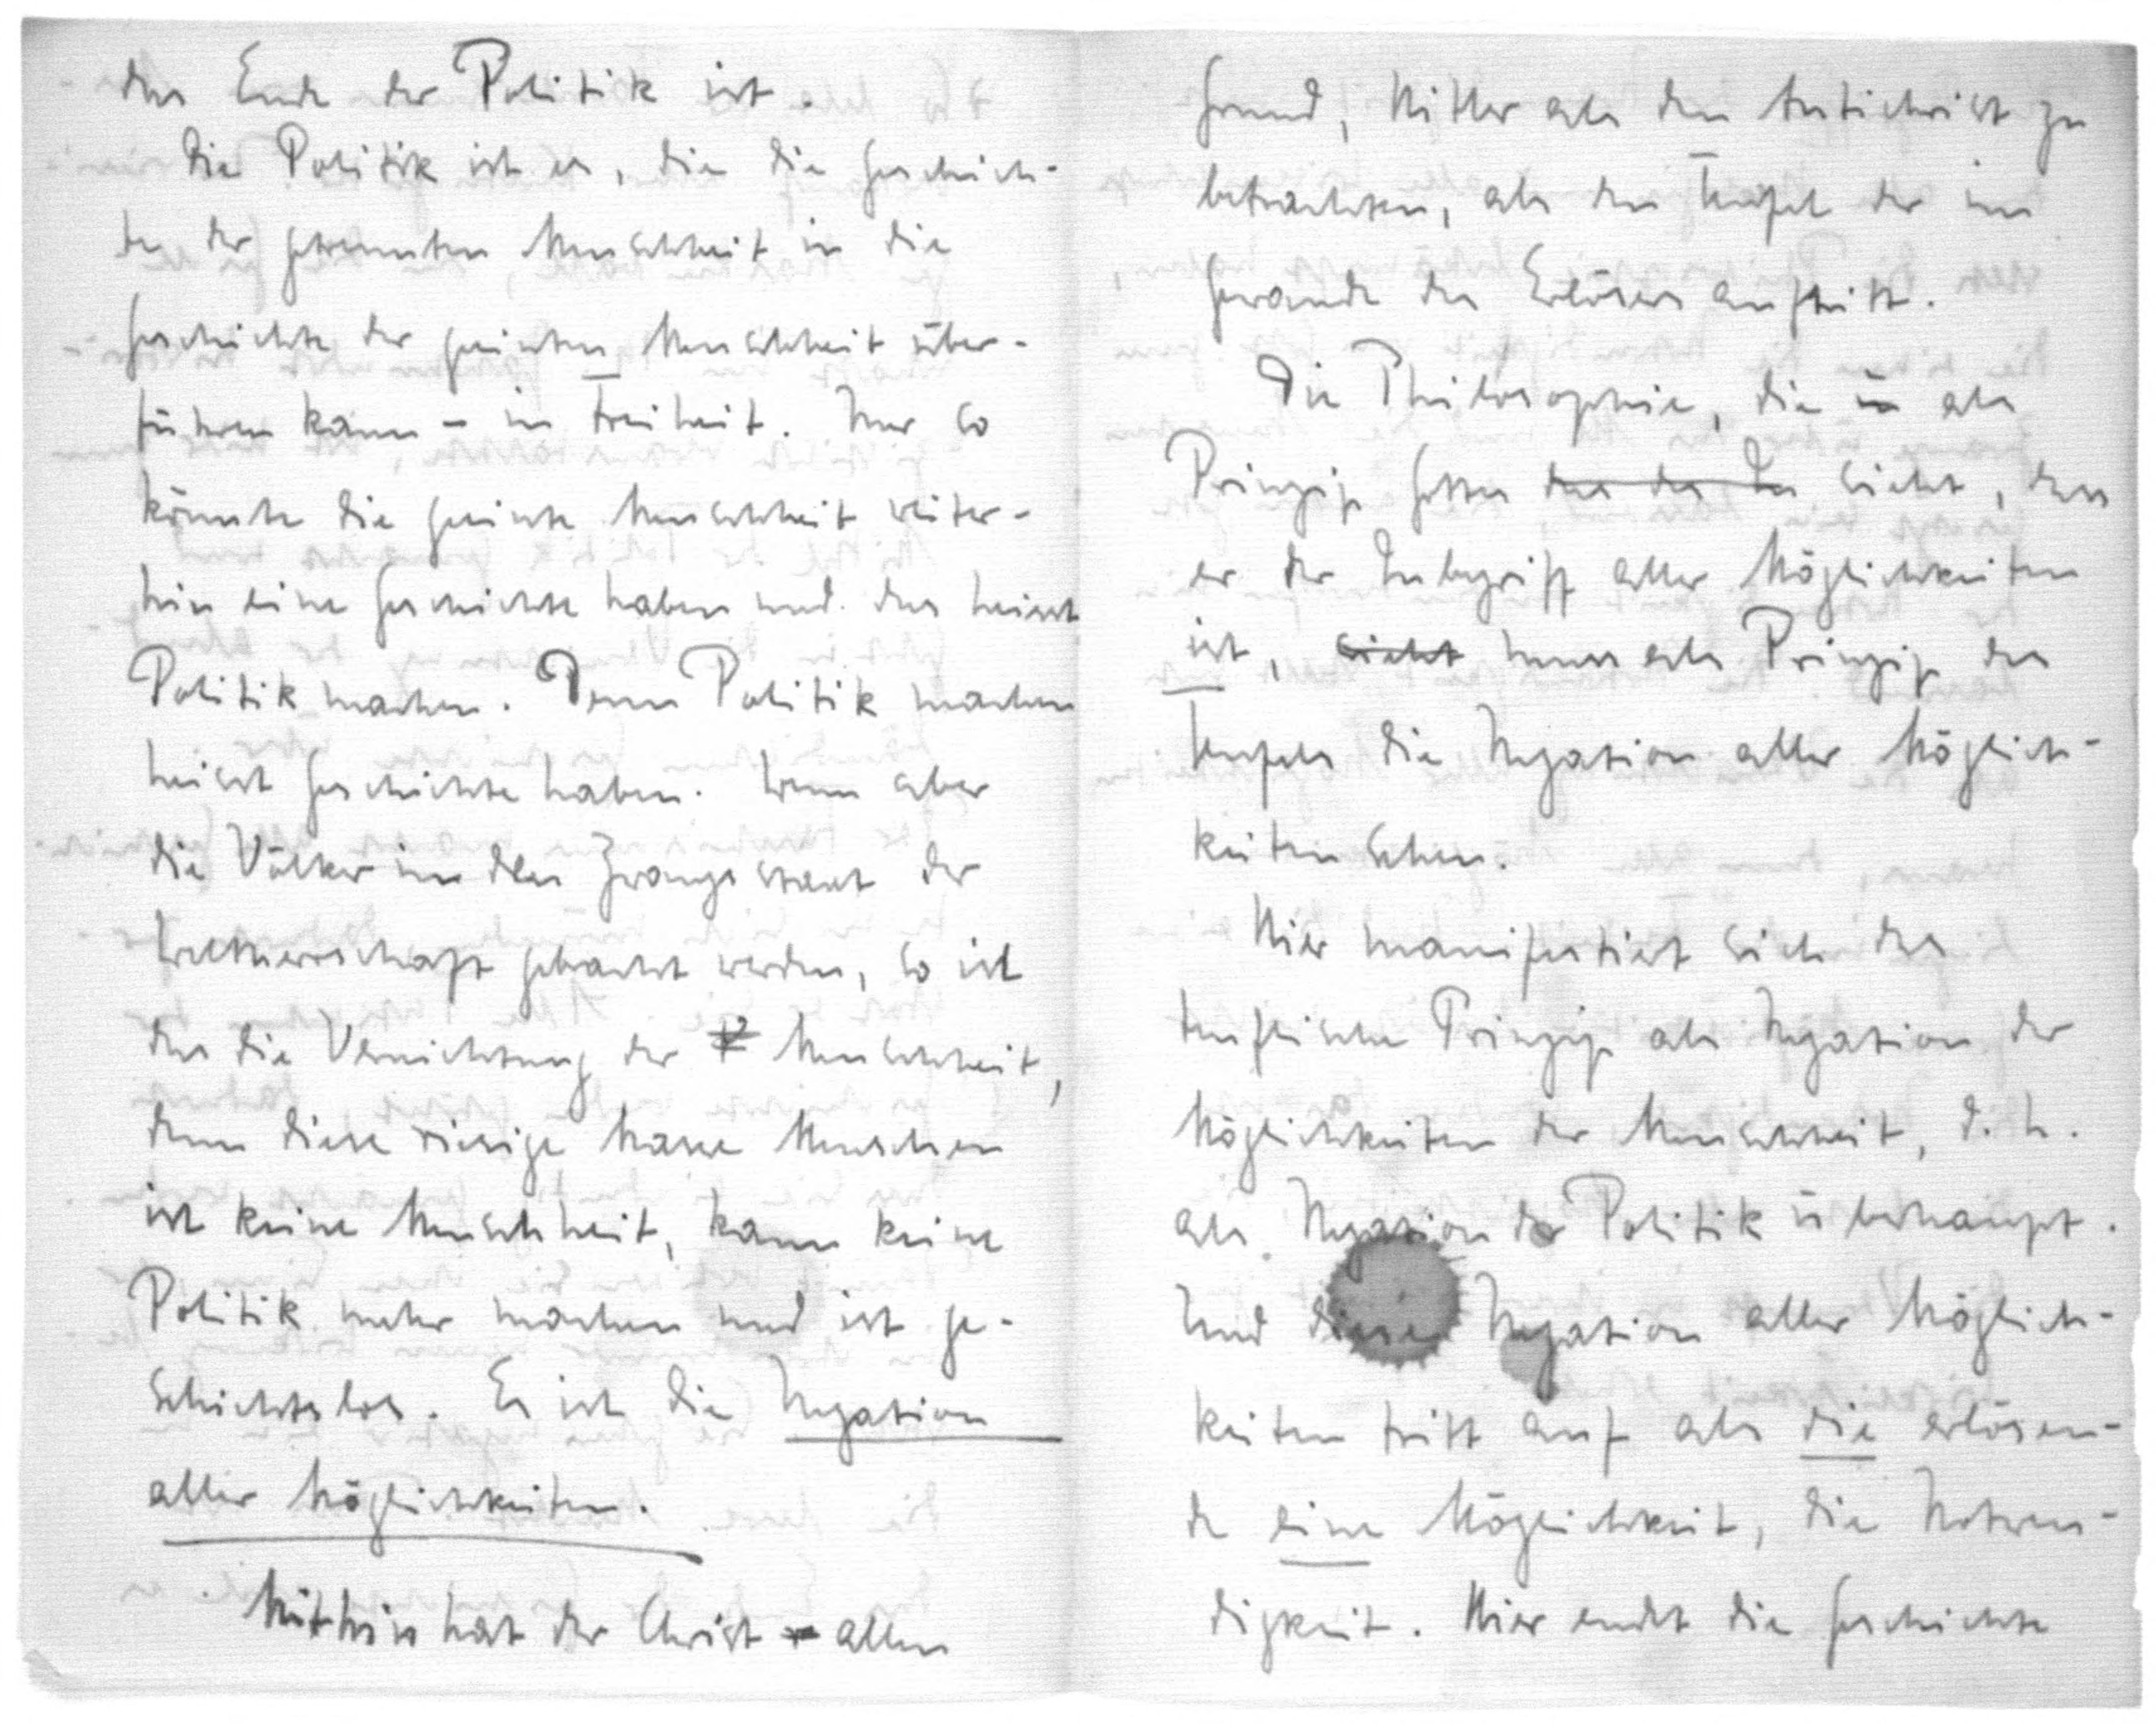 das Ende der Politik ist.
Die Politik ist es, die die Geschich-
te der getrennten Menschheit in die
Geschichte der geeinten Menschheit über-
führen kann – in Freiheit. Nur so
könnte die geeinte Menschheit weiter-
hin eine Geschichte haben und das heisst
Politik machen. Denn Politik machen
heisst Geschichte haben. Wenn aber
die Völker in den Zwangsstaat der
Weltherrschaft gebracht werden, so ist
das die Vernichtung der Menschheit,
denn diese riesige Masse Menschen
ist keine Menschheit, kann keine
Politik mehr machen und ist ge-
schichtslos. Es ist die Negation
aller Möglichkeiten.
Mithin hat der Christ allen
Grund, Hitler als den Antichrist zu
betrachten, als den Teufel der im
Gewande des Erlösers auftritt.
Die Philosophie, die in als
Prinzip Gottes das des Da sieht, dass
er der Inbegriff aller Möglichkeiten
ist, sieht muss als Prinzip des
Teufels die Negation aller Möglich-
keiten sehen.
Hier manifestiert sich das
teuflische Prinzip als Negation der
Möglichkeiten der Menschheit, d.h.
als Negation der Politik überhaupt.
Und diese Negation aller Möglich-
keiten tritt auf als die erlösen-
de eine Möglichkeit, die Notwen-
digkeit. Hier endet die Geschichte